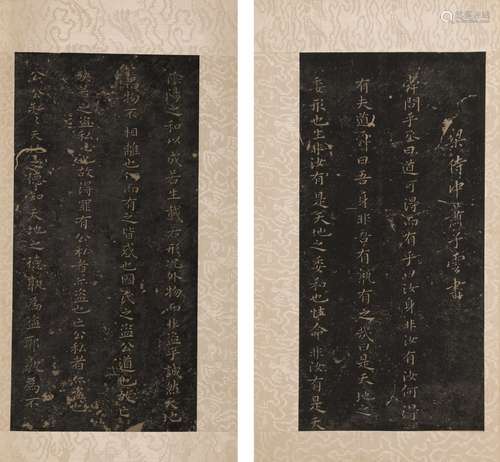 梁侍中蕭子雲書
舜問乎丞曰道可得而有乎曰汝身非汝有汝何得
有夫道舜曰吾身非吾有孰有之哉曰是天地之
委形也生非汝有是天地之委和也性命非汝有是天
陰陽之和以成若生載若形況外物而非盜乎誠然天地
萬物不相離也而有之皆惑也國氏之盜公道也故亡
殃若之盜私心也故得罪有公私者亦盜也亡公私者亦盜也
公公私私天地之德知天地之德孰為盜耶孰為不